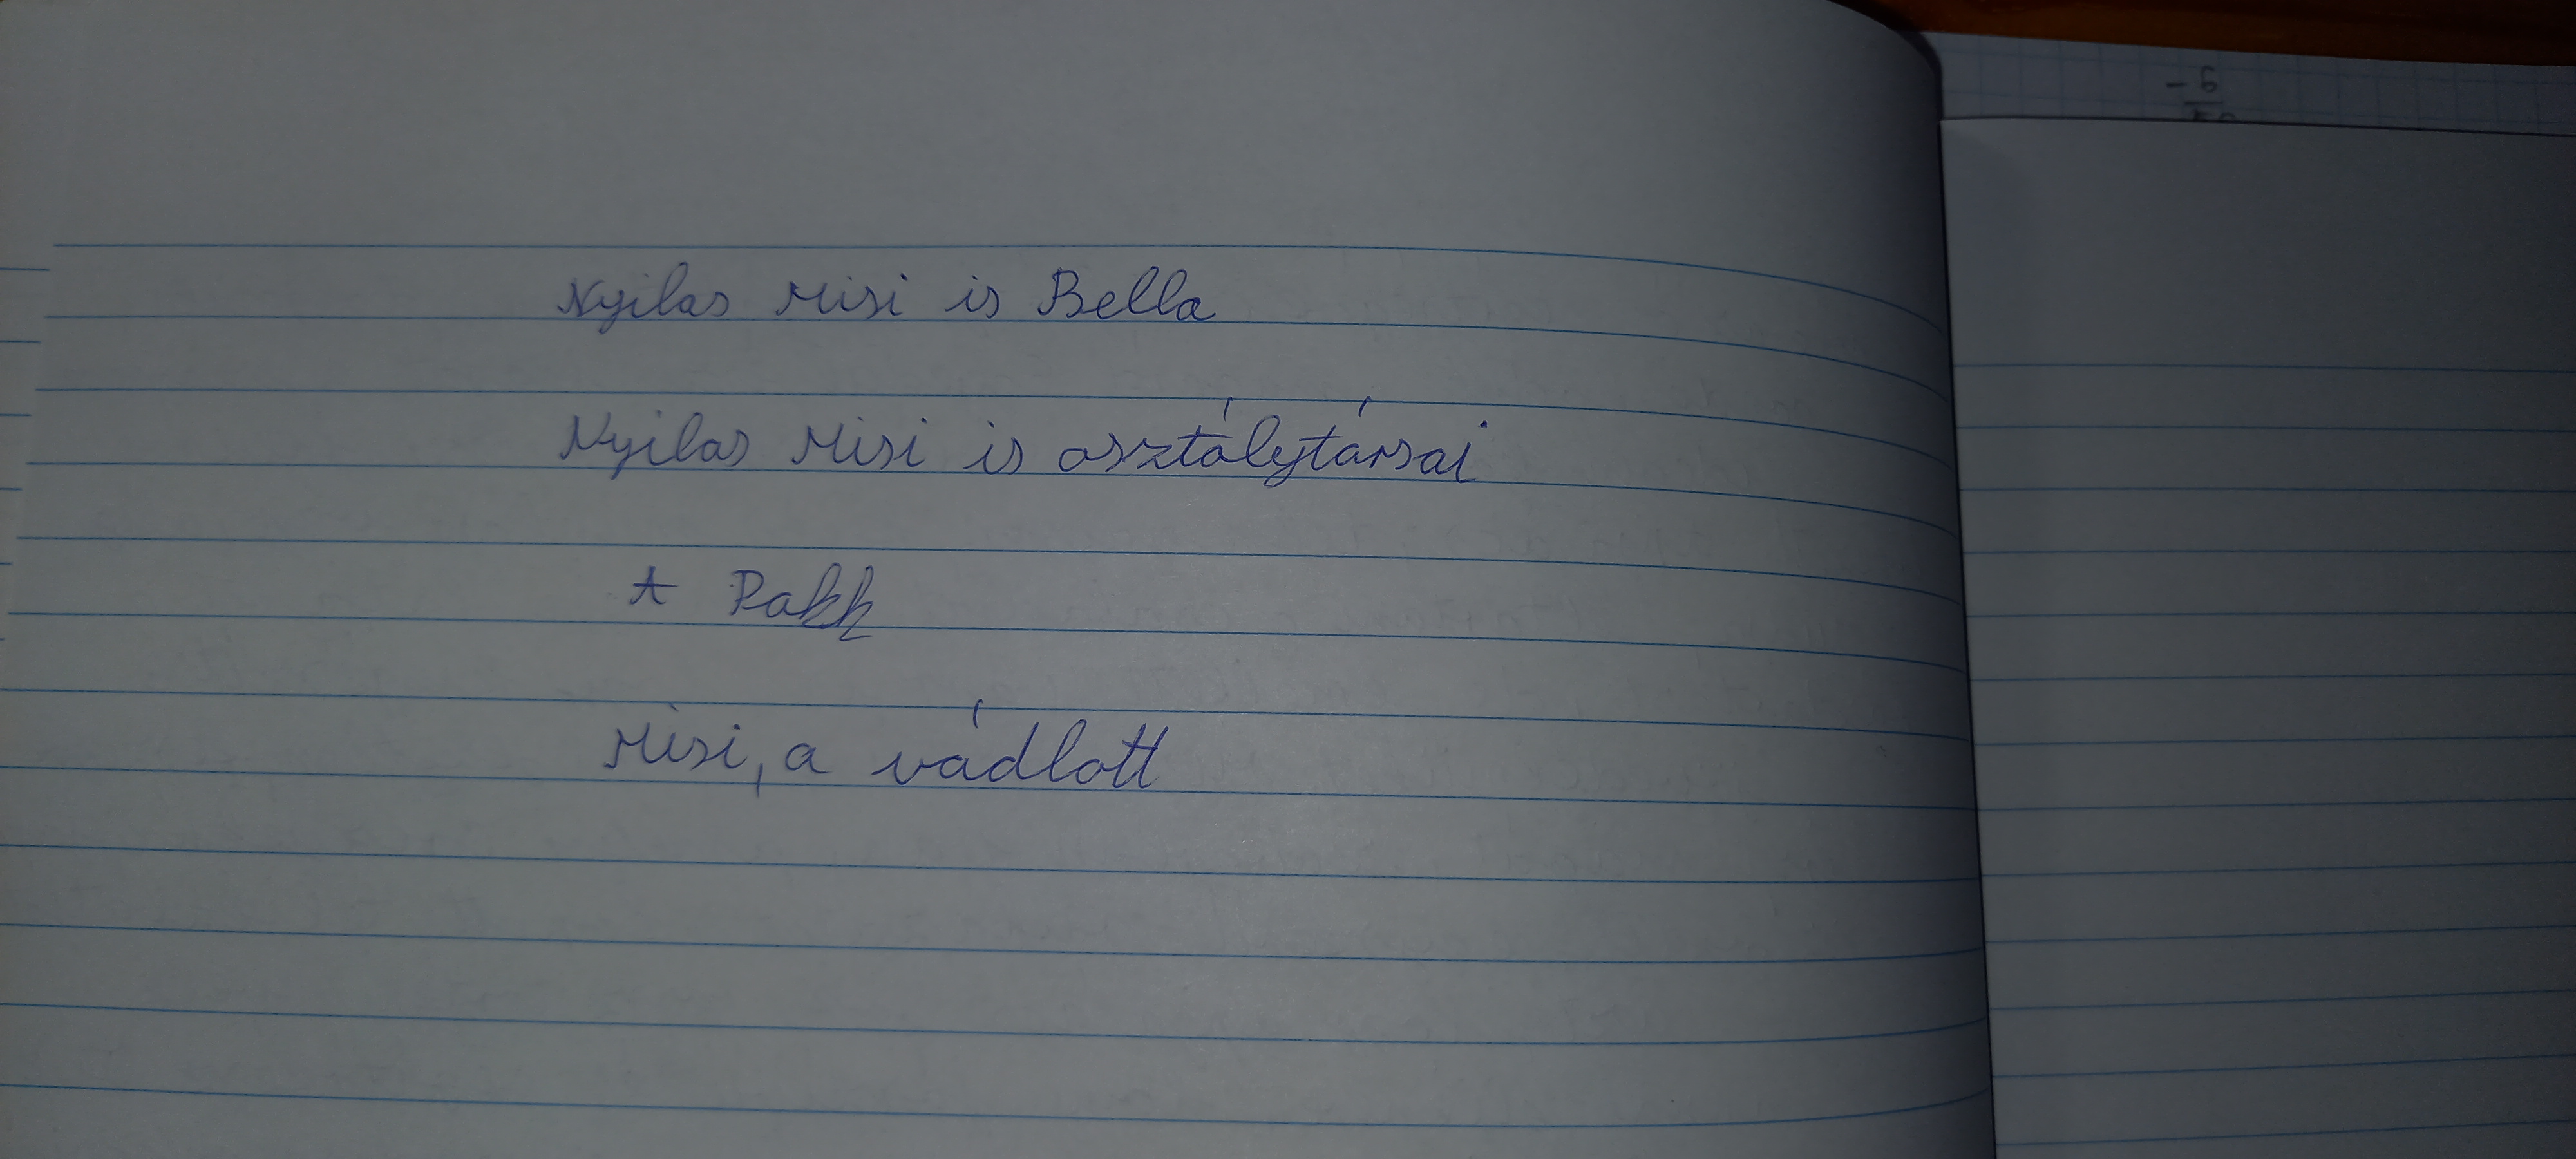 Nyilas Misi is Bella
Nyilas Misi is osztálytársai
A Pakk
Misi, a vádlott
- 6